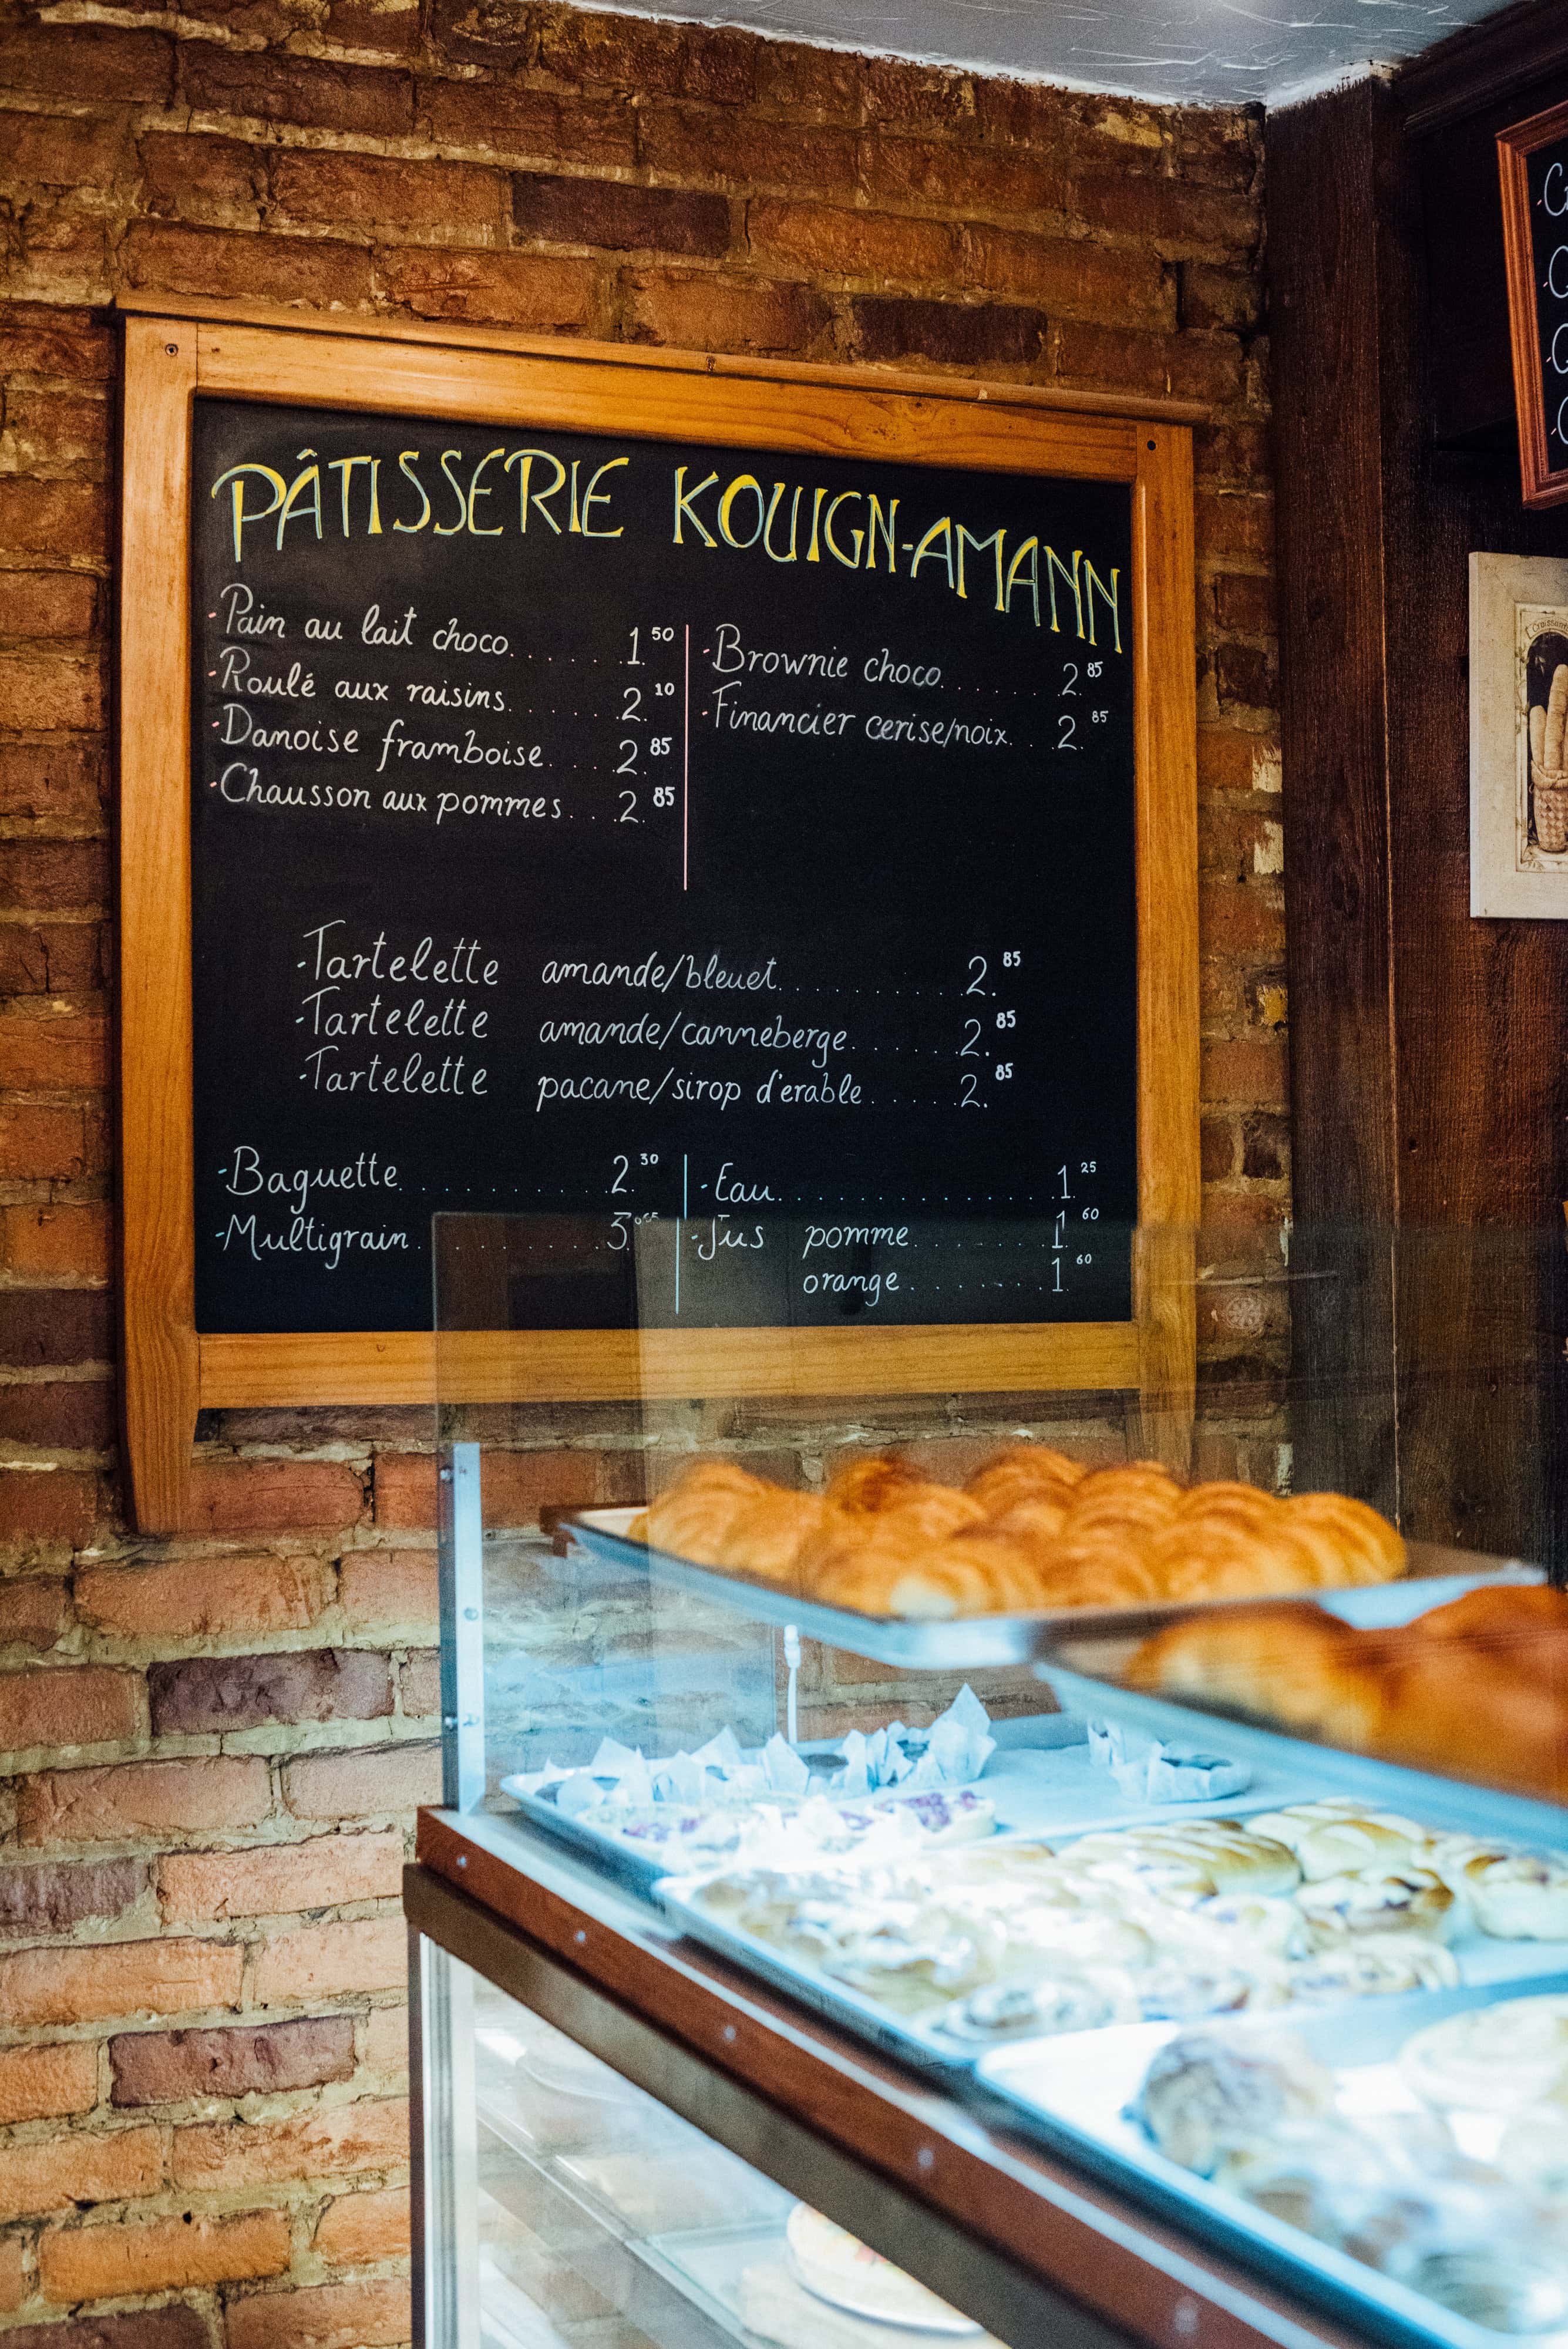 PÂTISSERIE KOUIGN-AMANN
-Pain au lait choco...... 1.50
-Roulé aux raisins...... 2.10
-Danoise framboise.... 2.85
-Chausson aux pommes... 2.85
-Brownie choco....... 2.85
-Financier cerise/noix... 2.85
-Tartelette amande/bleuet.......... 2.85
-Tartelette amande/canneberge...... 2.85
-Tartelette pacane/sirop d'érable..... 2.85
-Baguette.......... 2.30
-Multigrain.......... 3.
-Eau.............. 1.25
-Jus pomme........ 1.60
orange........ 1.60